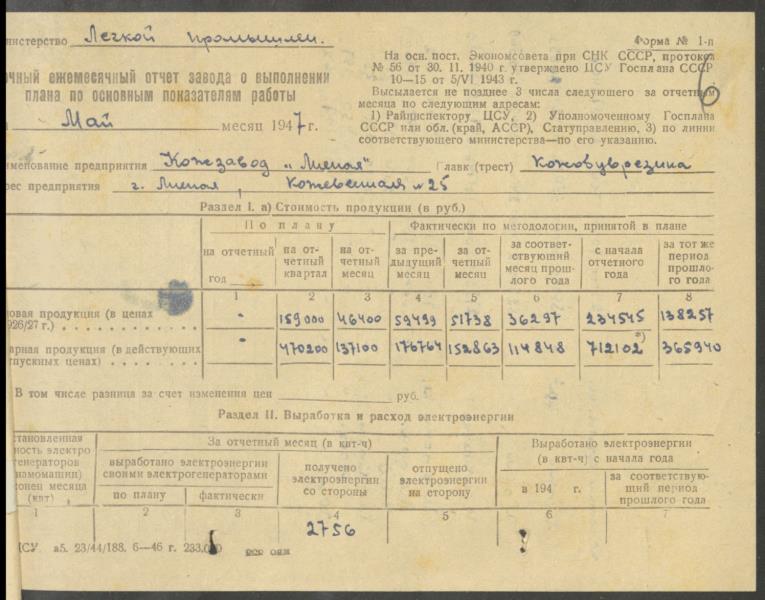 нистерство Легкой промышлен.
Форма № 1-п
На осн. пост. Экономсовета при СНК СССР, протокол
№ 56 от 30. 11. 1940 г. утверждено ЦСУ Госплана СССР
10—15 от 5/VI 1943 г.
Высылается не позднее 3 числа следующего за отчетным
месяца по следующим адресам:
1) Райинспектору ЦСУ, 2) Уполномоченному Госплана
СССР или обл. (край, АССР), Статуправлению, 3) по линии
соответствующего министерства—по его указанию.
очный ежемесячный отчет завода о выполнении
плана по основным показателям работы
Май месяц 1947 г.
именование предприятия Кожзавод „Лиепая" Главк (трест)
рес предприятия г. Лиепая, Кожевенная №25
Раздел I. а) Стоимость продукции (в руб.)
По плану Фактически по методологии, принятой в плане
на отчетный год
на отчетный квартал
на отчетный месяц
за предыдущий месяц
за отчетный месяц
за соответствующий месяц прошлого года
с начала отчетного года
за тот же период прошлого года
1 2 3 4 5 6 7 8
ловая продукция (в ценах
926/27 г.) 159000 46400 59499 51738 36297 234545 138257
арная продукция (в действующих
пускных ценах) 470200 137100 176764 152863 114848 712102 *) 365940
В том числе разница за счет изменения цен руб.
Раздел II. Выработка и расход электроэнергии
становленная
ность электро
генераторов
намомашин)
конец месяца
(квт)
За отчетный месяц (в квт-ч)
выработано электроэнергии
своими электрогенераторами
по плану фактически
получено
электроэнергии
со стороны
отпущено
электроэнергии
на сторону
Выработано электроэнергии
(в квт-ч) с начала года
в 194 г.
за соответствующий период
прошлого года
1 2 3 4 5 6 7
2756
ЦСУ аб. 23/44/188. 6—46 г.